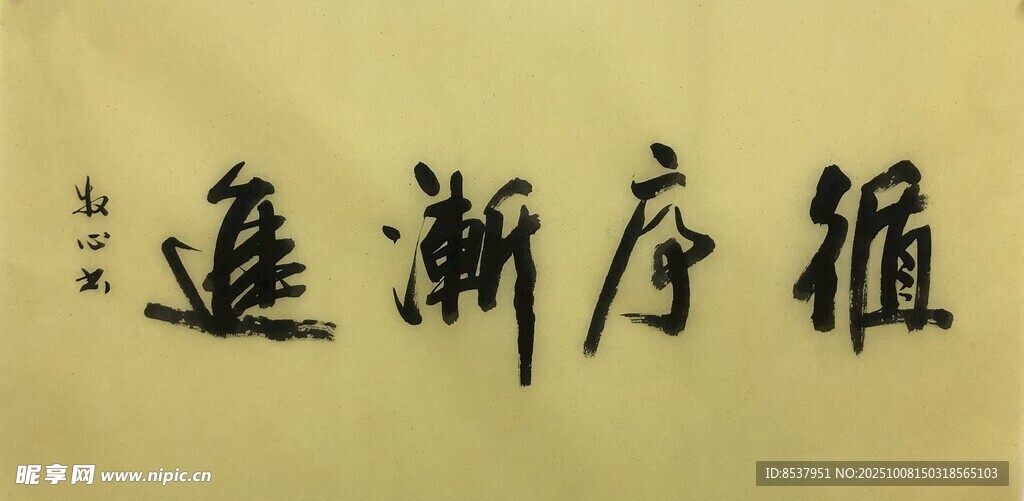 循序漸進
牧心書
昵享网 www.nipic.cn
ID:8537951 NO:20251008150318565103